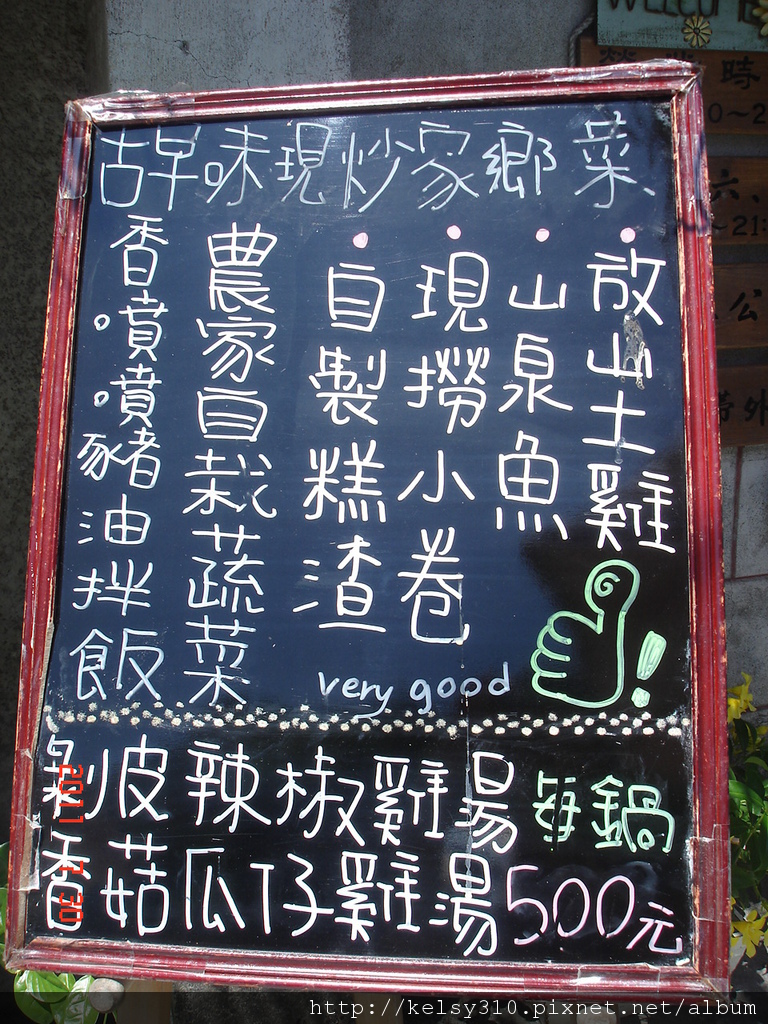 WELCOME
古早味現炒家鄉菜
放山土雞
山泉魚
現撈小卷
自製糕渣
農家自栽蔬菜
香噴噴豬油拌飯
very good
!
剝皮辣椒雞湯 每鍋
香菇瓜仔雞湯 500元
時
六、
公
外
2011 7 30
http://kelsy310.pixnet.net/album